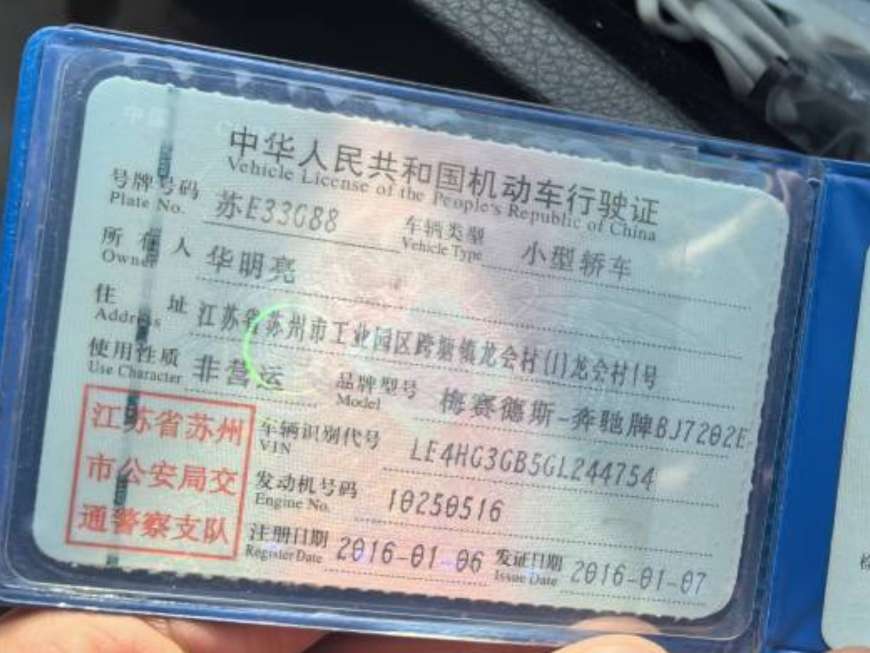 中华人民共和国机动车行驶证
Vehicle License of the People's Republic of China
号牌号码 苏E33G88 车辆类型 小型轿车
Plate No. Vehicle Type
所有人 华明亮
Owner
住址 江苏省苏州市工业园区跨塘镇龙会村(1)龙会村1号
Address
使用性质 非营运 品牌型号 梅赛德斯-奔驰牌BJ7202E
Use Character Model
江苏省苏州 车辆识别代号 LE4HG3GB5GL244754
VIN
市公安局交 发动机号码 10250516
Engine No.
通警察支队 注册日期 2016-01-06 发证日期 2016-01-07
Register Date Issue Date